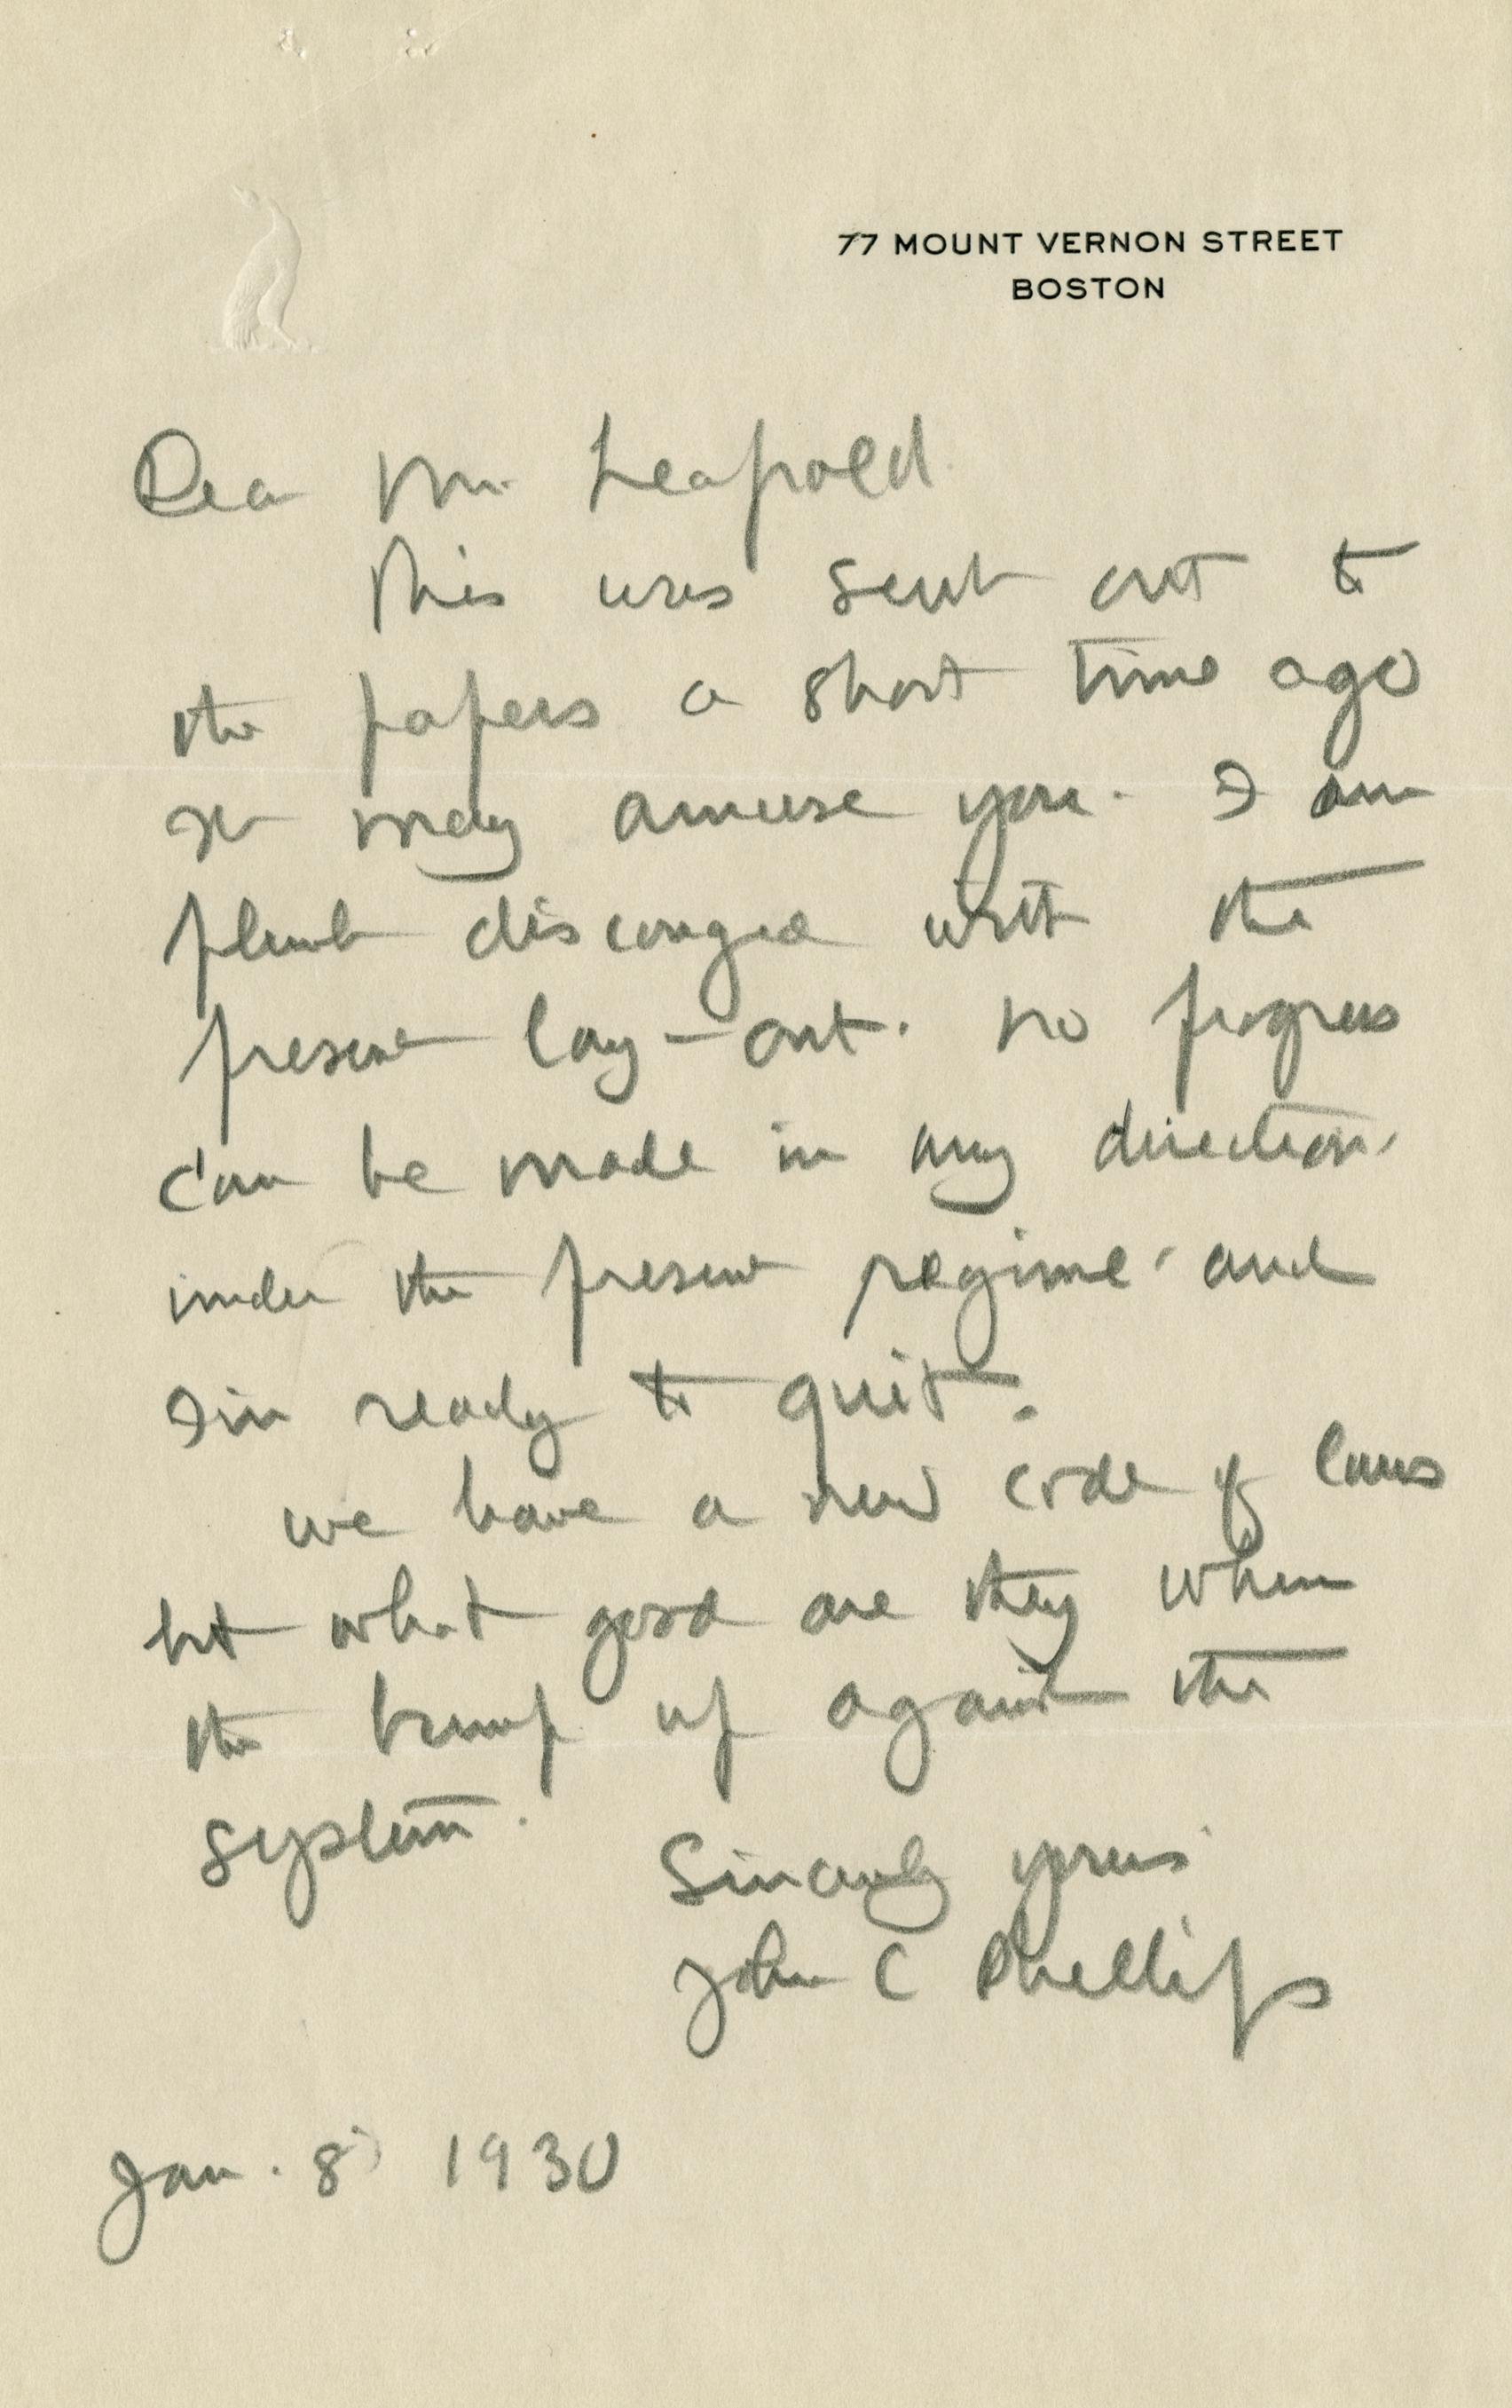 77 MOUNT VERNON STREET
BOSTON
Dear Mr. Leopold
This was sent out to
the papers a short time ago
It may amuse you. I am
plumb discouraged with the
present lay-out. No progress
can be made in any direction,
under the present regime and
I'm ready to quit.
We have a new code of laws
but what good are they when
the bump up against the
system.
Sincerely yours
John C Phillips
Jan. 8 1930